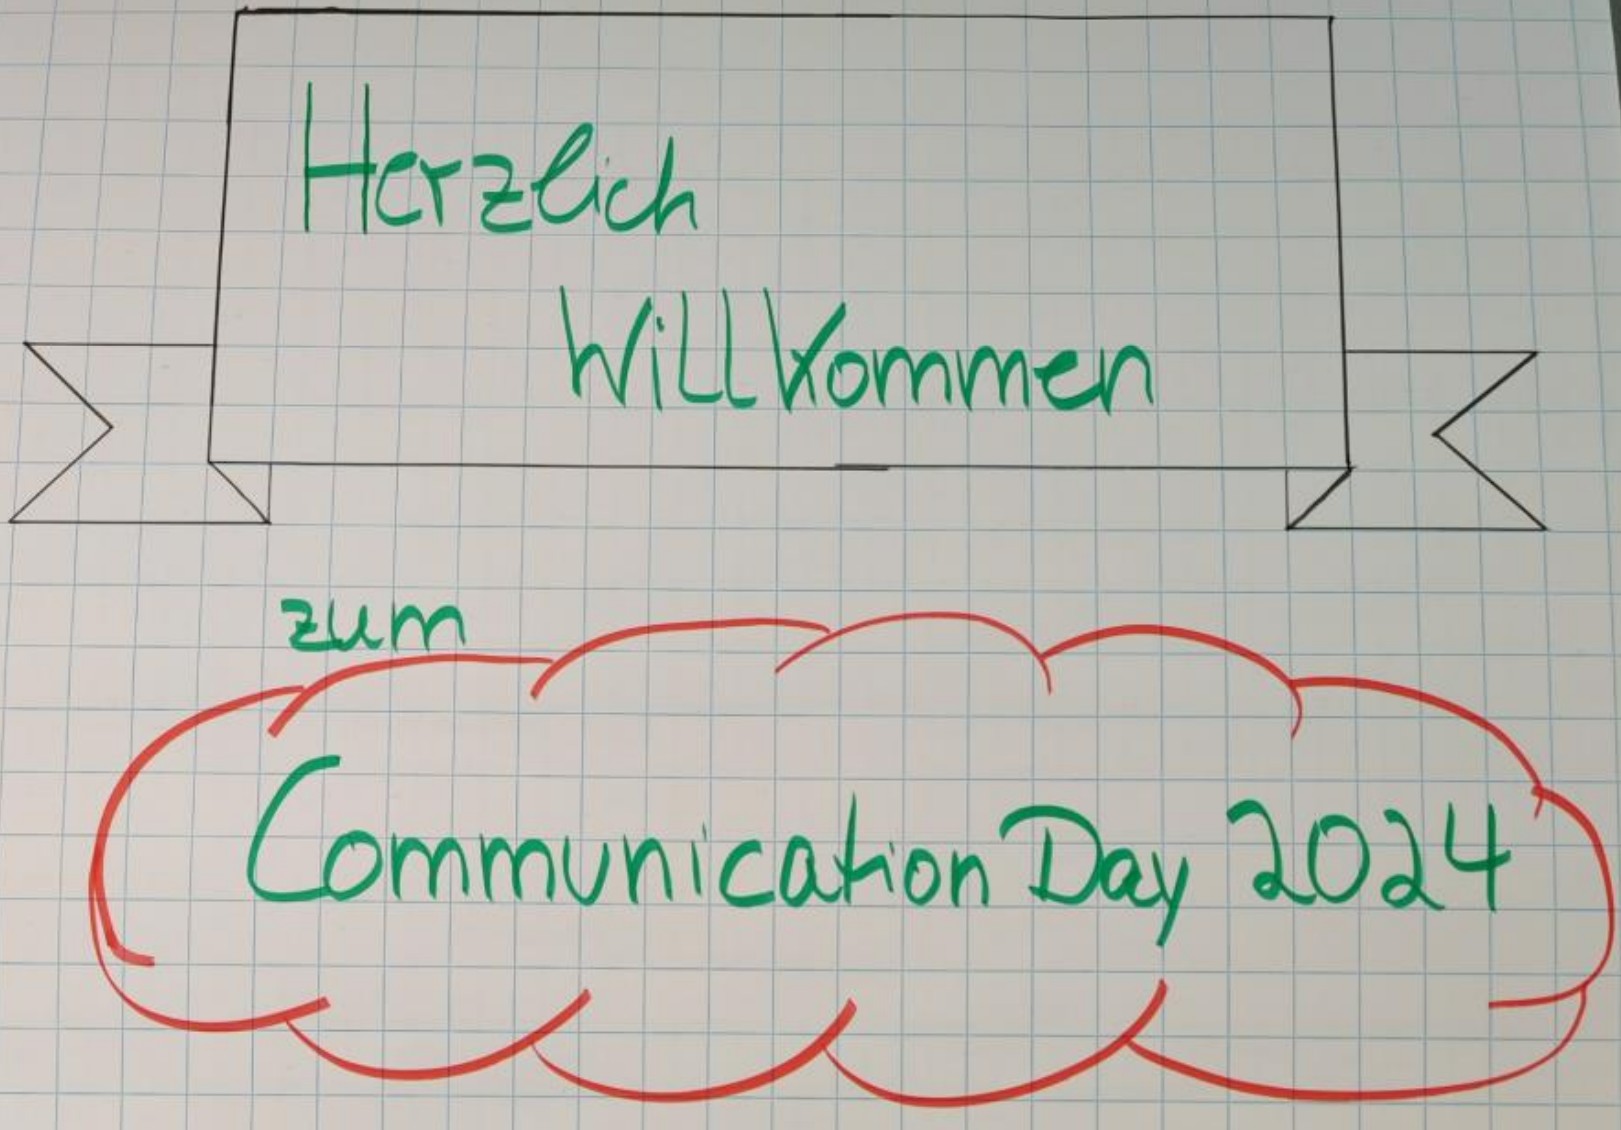 Herzlich
Willkommen
zum
Communication Day 2024